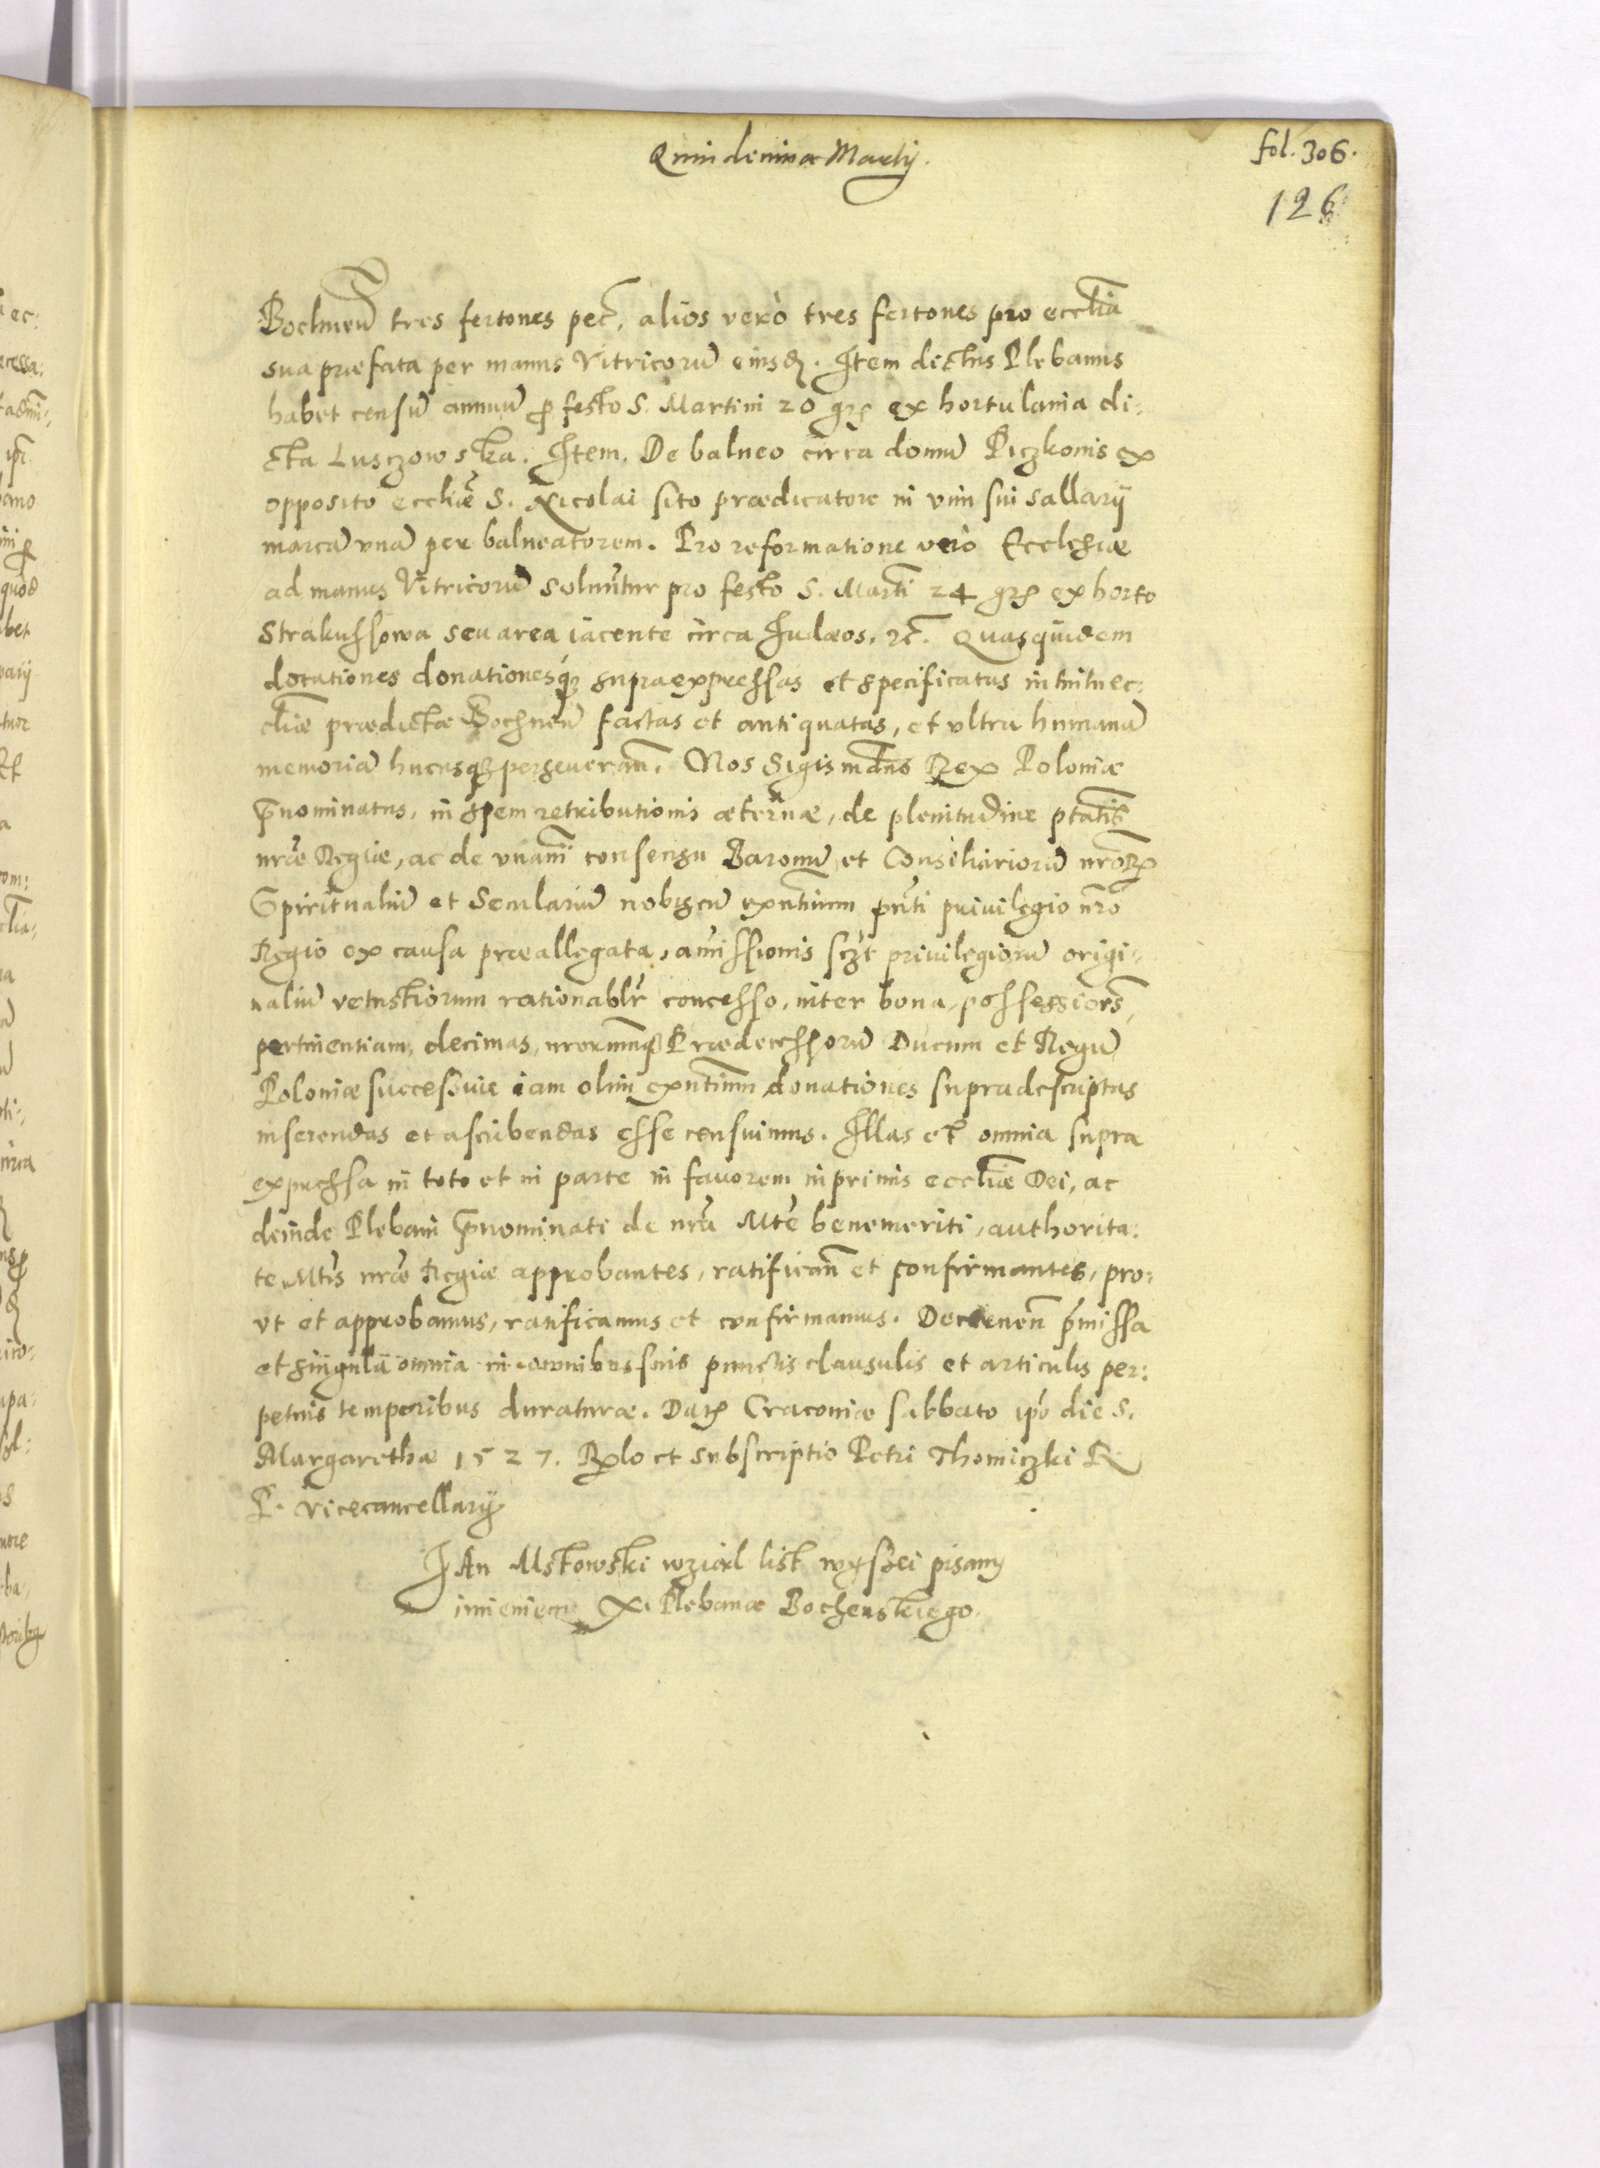 Quindenna Martij.
fol. 306.
126
Bochnen̄ tres fertones pec̄, alios verò tres fertones pro eccl̄ia
sua præfata per manus Vitricorū eiusd. Item dictus Plebanus
habet censū annuū p festo S. Martini 20 grs ex hortulania di:
cta Lusczowska. Item. De balneo circa domū Piczkonis ex
opposito eccl̄iæ S. Nicolai sito prædicatore in vim sui sallarij
marcā vnā per balneatorem. Pro reformatione verò Ecclesiæ
ad manus Vitricorū soluūtur pro festo S. Marti 24 grs ex horto
Strakussowa seu area iacente circa Iudæos. etc̄. Quasquidem
dotationes donationesq́ supraexpressas et specificatas intuitu ec:
cl̄iæ prædictæ Bochnen̄ factas et antiquatas, et vltra humanā
memoriā hucusq perseueran̄. Nos Sigismūdus Rex Poloniæ
p̄nominatus, in spem retributionis æternæ, de plenitudine ptātis
nr̄æ Regiæ, ac de vnanī consensu Baronū et Consiliariorū nr̄or
Spiritualiū et Seculariū nobiscū exn̄tium pn̄ti priuilegio nr̄o
Regio ex causa præallegata, amissionis sczt priuilegiorū origi:
naliū vetustiorum rationablr̄ concesso, inter bona, possessiões,
pertinentiam, decimas, nrorumq Prædecessorū Ducum et Regū
Poloniæ successiuè iam olim exn̄tium donationes supradescriptas
inserendas et ascribendas esse censuimus. Illas et omnia supra
expressa in toto et in parte in fauorem inprimis eccl̄iæ Dei, ac
deinde Plebani p̄nominati de nr̄a Mtē benemeriti, authorita:
te Mtīs nr̄æ Regiæ approbantes, ratifican̄ et confirmantes, pro:
vt et approbamus, ratificamus et confirmamus. Decernen̄ p̄missa
et singula omnia in omnibus suis punctis clausulis et articulis per:
petuis temporibus duraturæ. Dats Cracoviæ sabbato ip̄o die S.
Margarethæ 1527. Rlo et subscriptio Petri Thomiczki R
P. Vicecancellarij
IAn Mstowski wziął list wyszei pisany
imieniem X. Plebana Bochenskiego.